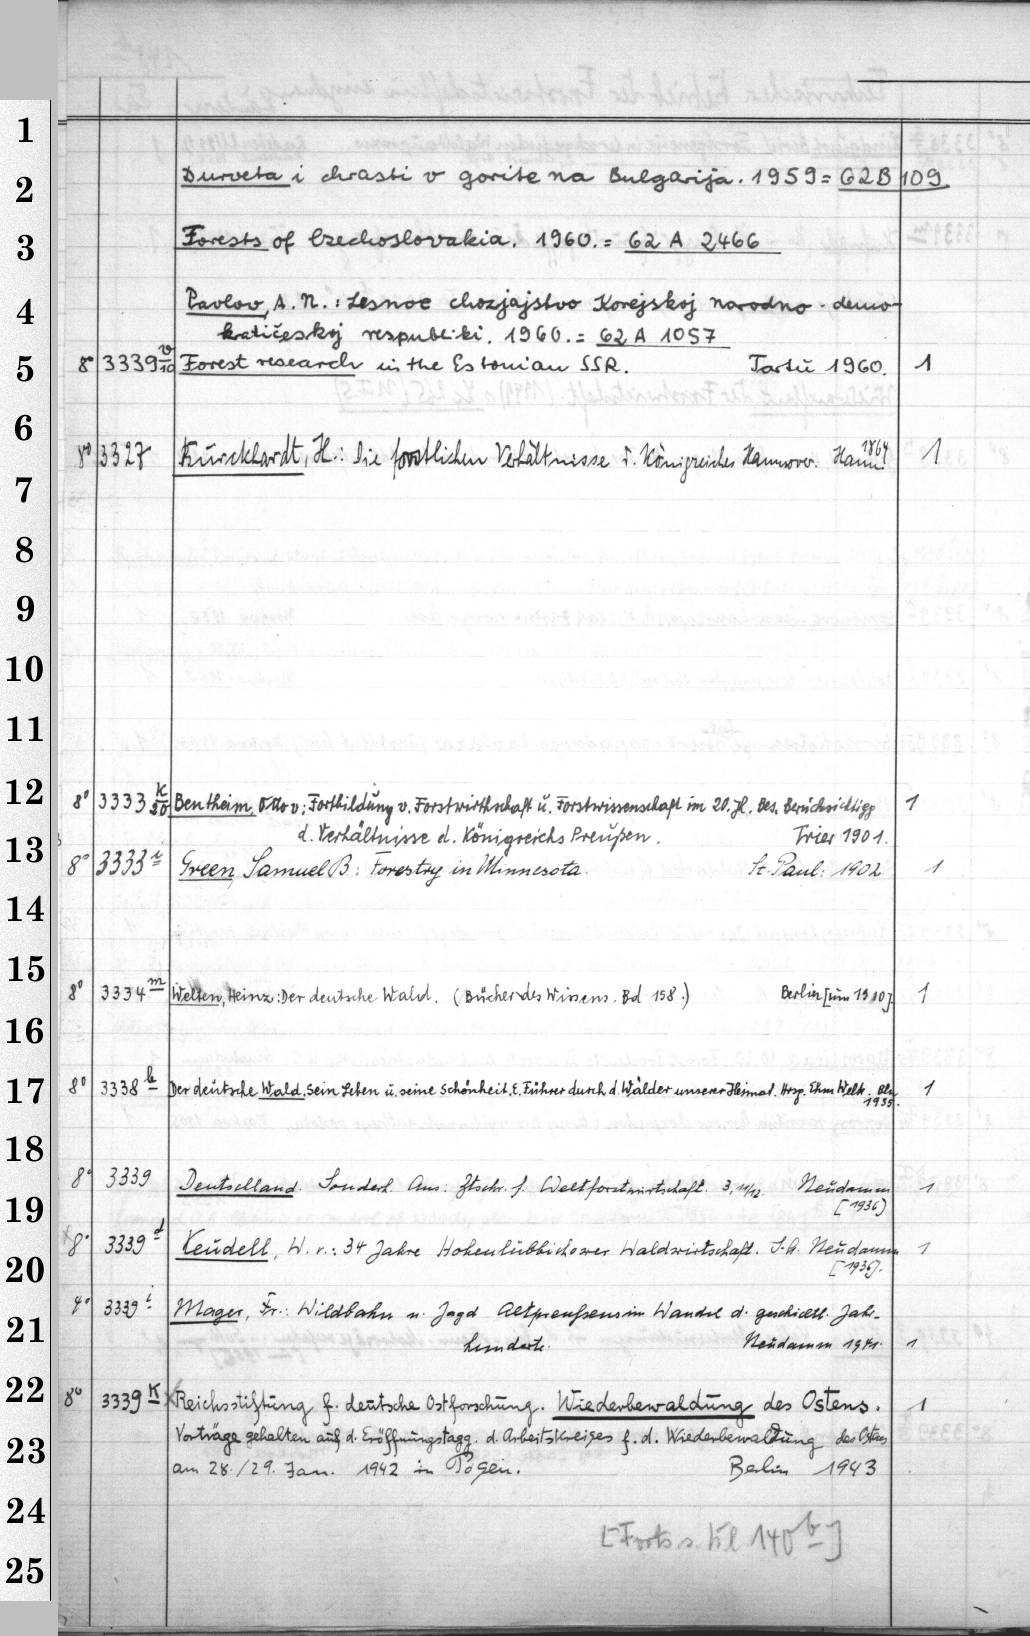 1
2 Durveta i chrasti v gorite na Bulgarija. 1959 = 62B 109.
3 Forests of Czechoslovakia. 1960. = 62 A 2466
4 Pavlov, A. N.: Lesnoe chozjajstvo Korejskoj narodno-demo-
kratičeskoj respubliki. 1960. = 62 A 1057
5 8° 3339 v/10 Forest research in the Estonian SSR. Tartu 1960. 1
6
8° 3327 Burckhardt, H.: Die forstlichen Verhältnisse d. Königreiches Hannover. Hann. 1864 1
7
8
9
10
11
12 8° 3333 k/50 Bentheim, Otto v.: Fortbildung v. Forstwirthschaft u. Forstwissenschaft im 20. Jh. Bes. Berücksichtigg
d. Verhältnisse d. Königreichs Preußen. Trier 1901. 1
13 8° 3333 r Green, Samuel B.: Forestry in Minnesota. St. Paul: 1902 1
14
15
8° 3334 m Welten, Heinz: Der deutsche Wald. (Bücher des Wissens. Bd 158.) Berlin [um 1910] 1
16
17 8° 3338 b Der deutsche Wald. Sein Leben u. seine Schönheit. E. Führer durch d. Wälder unserer Heimat. Hrsg. Ehm Welk. Bln 1935. 1
18
8° 3339 Deutschland. Sonderh. Aus: Ztschr. f. Weltforstwirtschaft. 3, 11/12. Neudamm 1
19 [1936]
8° 3339 d Keudell, W. v.: 34 Jahre Hohenlübbichower Waldwirtschaft. 2. A. Neudamm 1
20 [1936].
4° 3339 i Mager, Fr.: Wildbahn u. Jagd Altpreußens im Wandel d. geschichtl. Jahr-
21 hunderte. Neudamm 1941. 1
22 8° 3339 K Reichsstiftung f. deutsche Ostforschung. Wiederbewaldung des Ostens. 1
Vorträge gehalten auf d. Eröffnungstagg. d. Arbeitskreises f. d. Wiederbewaldung des Ostens
23 am 28./29. Jan. 1942 in Posen. Berlin 1943
24
[Forts. s. Bl 140 b]
25